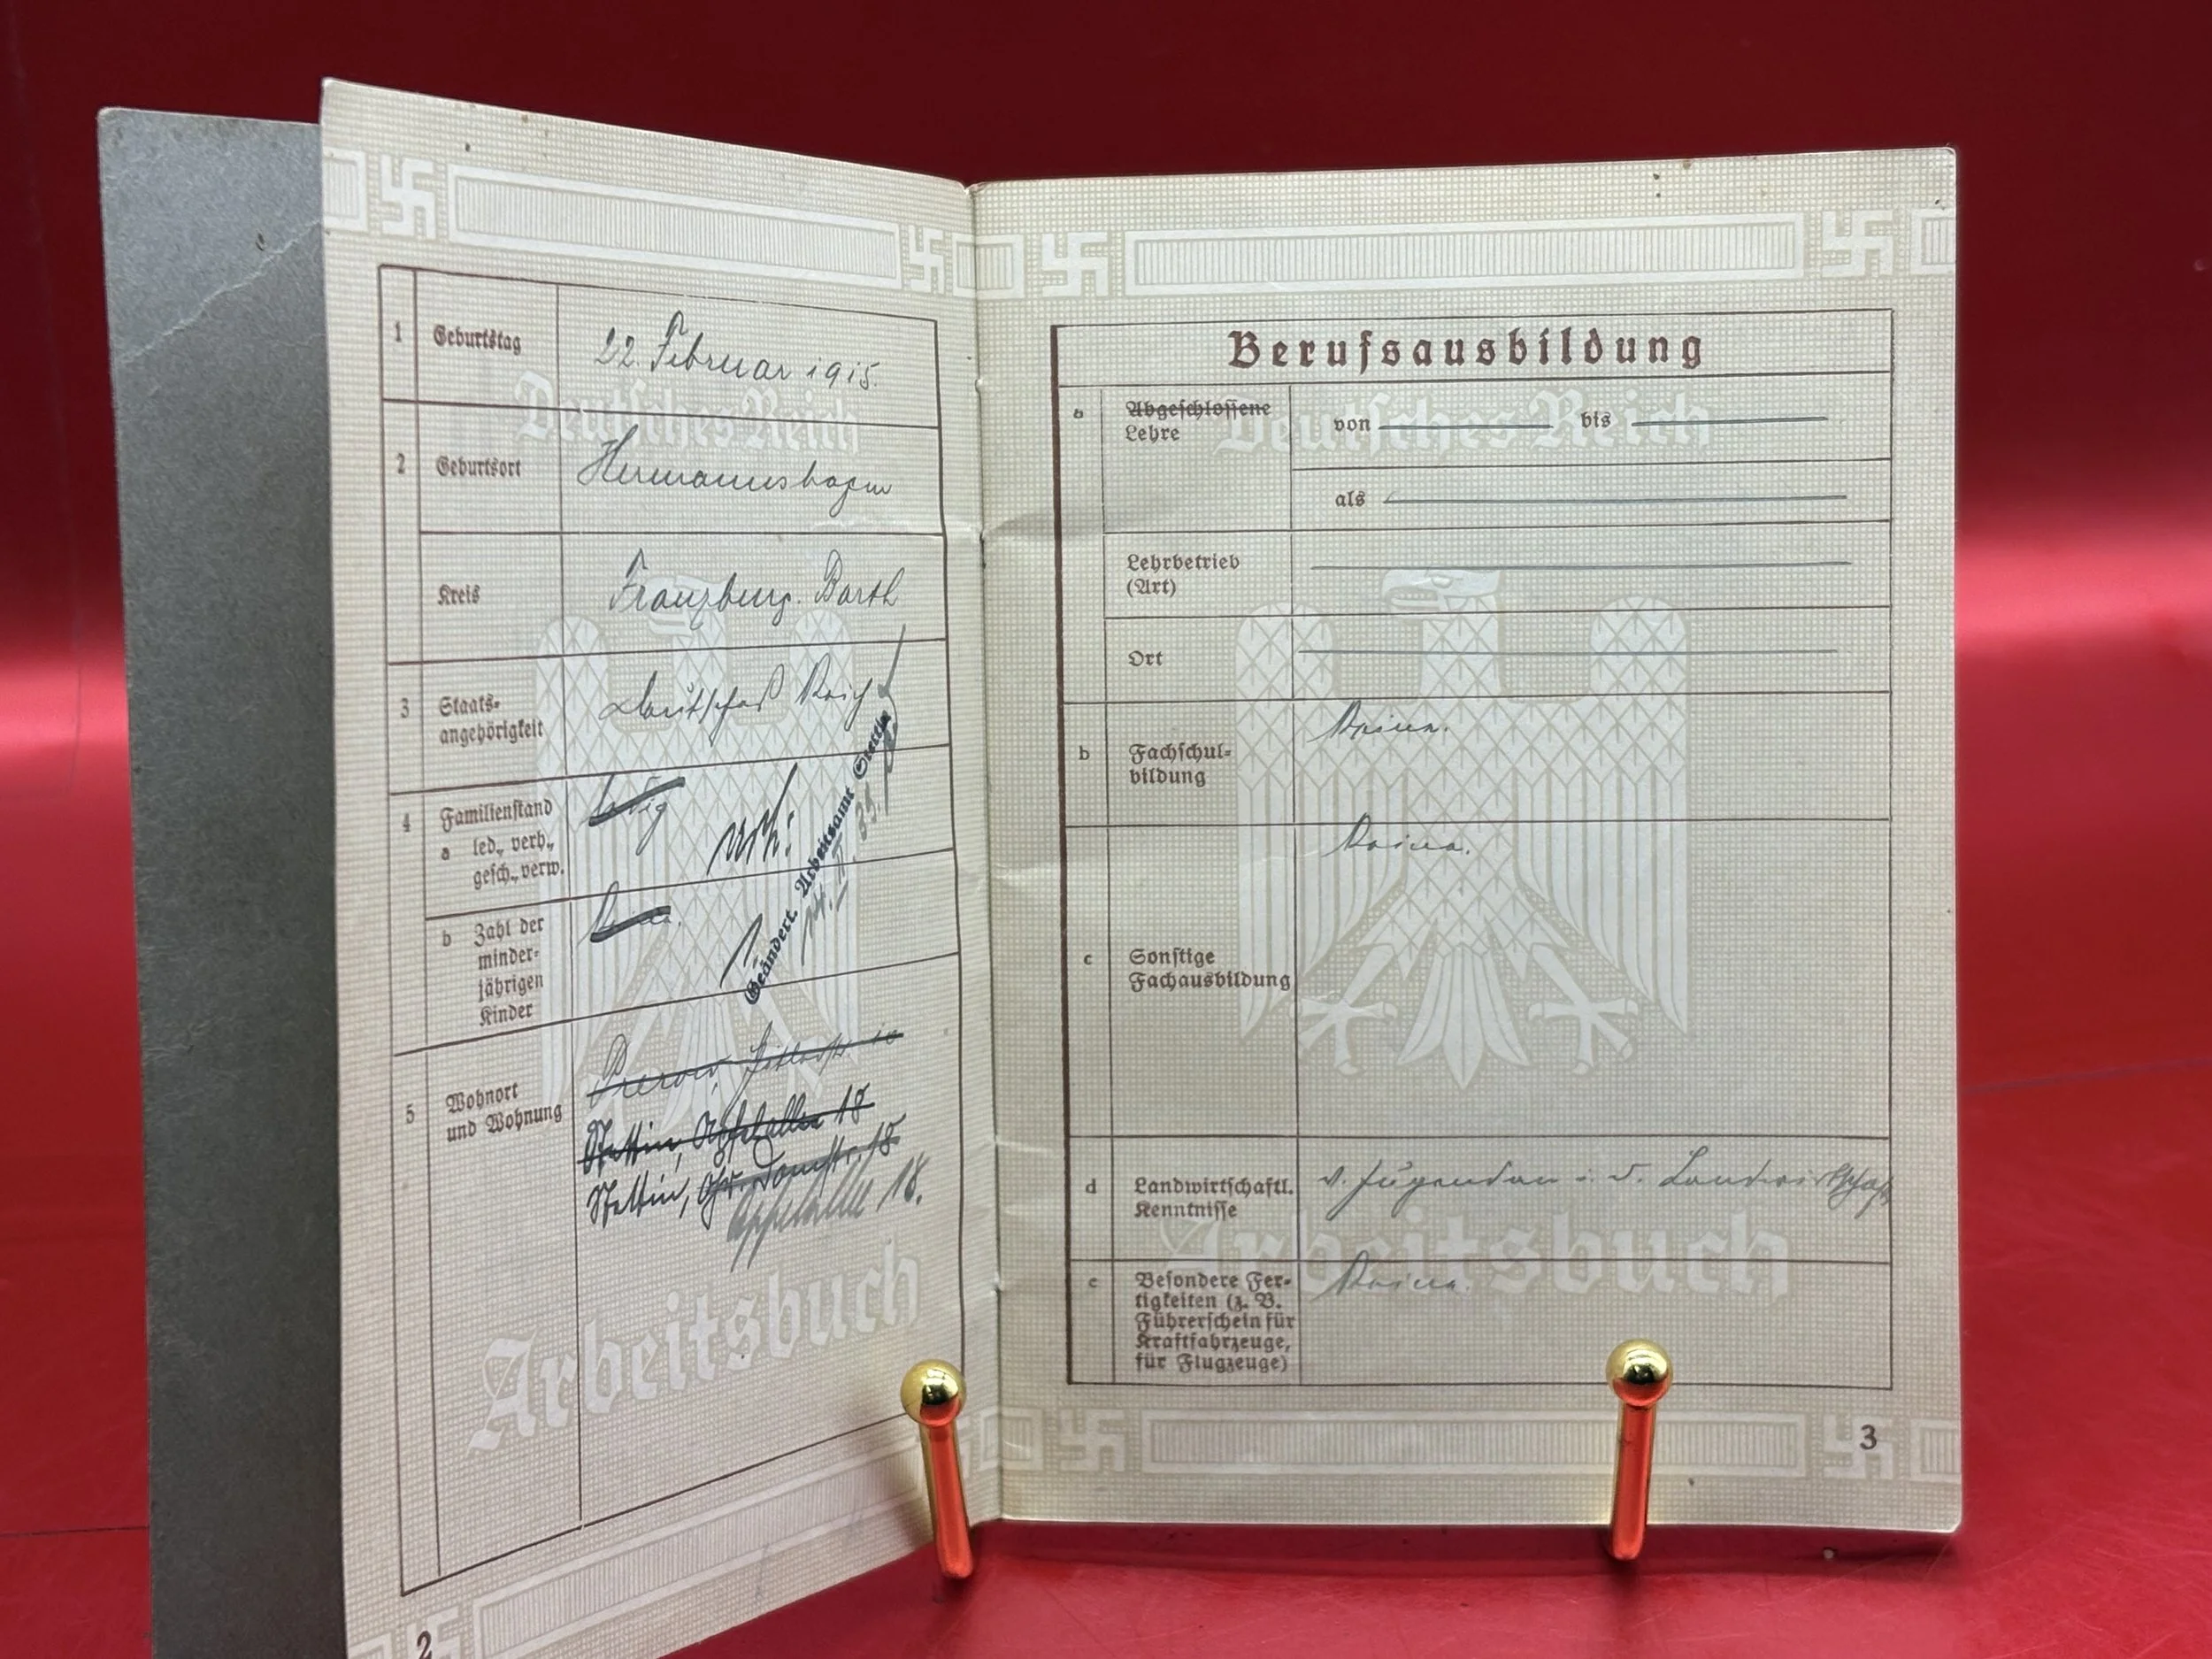 1 Geburtstag 22. Februar 1915.
Deutsches Reich
2 Geburtsort Hermannshagen
Kreis Franzburg. Barth
3 Staats-
angehörigkeit Deutsches Reich
4 Familienstand
a led., verh.,
gesch., verw. ledig verh.
b Zahl der
minder-
jährigen
Kinder Keine. 1
Geändert. Arbeitsamt Stettin
5 Wohnort
und Wohnung
Prerow, Hitlerstr. 10
Stettin, Apfelallee 18
Stettin, Gr. Domstr. 18
Apfelallee 18.
Arbeitsbuch
2
Berufsausbildung
a Abgeschlossene
Lehre von bis
Deutsches Reich
als
Lehrbetrieb
(Art)
Ort
b Fachschul-
bildung Keine.
c Sonstige
Fachausbildung Keine.
d Landwirtschaftl.
Kenntnisse v. Jugend an i. d. Landwirtschaft
Arbeitsbuch
e Besondere Fer-
tigkeiten (z. B.
Führerschein für
Kraftfahrzeuge,
für Flugzeuge) Keine.
3